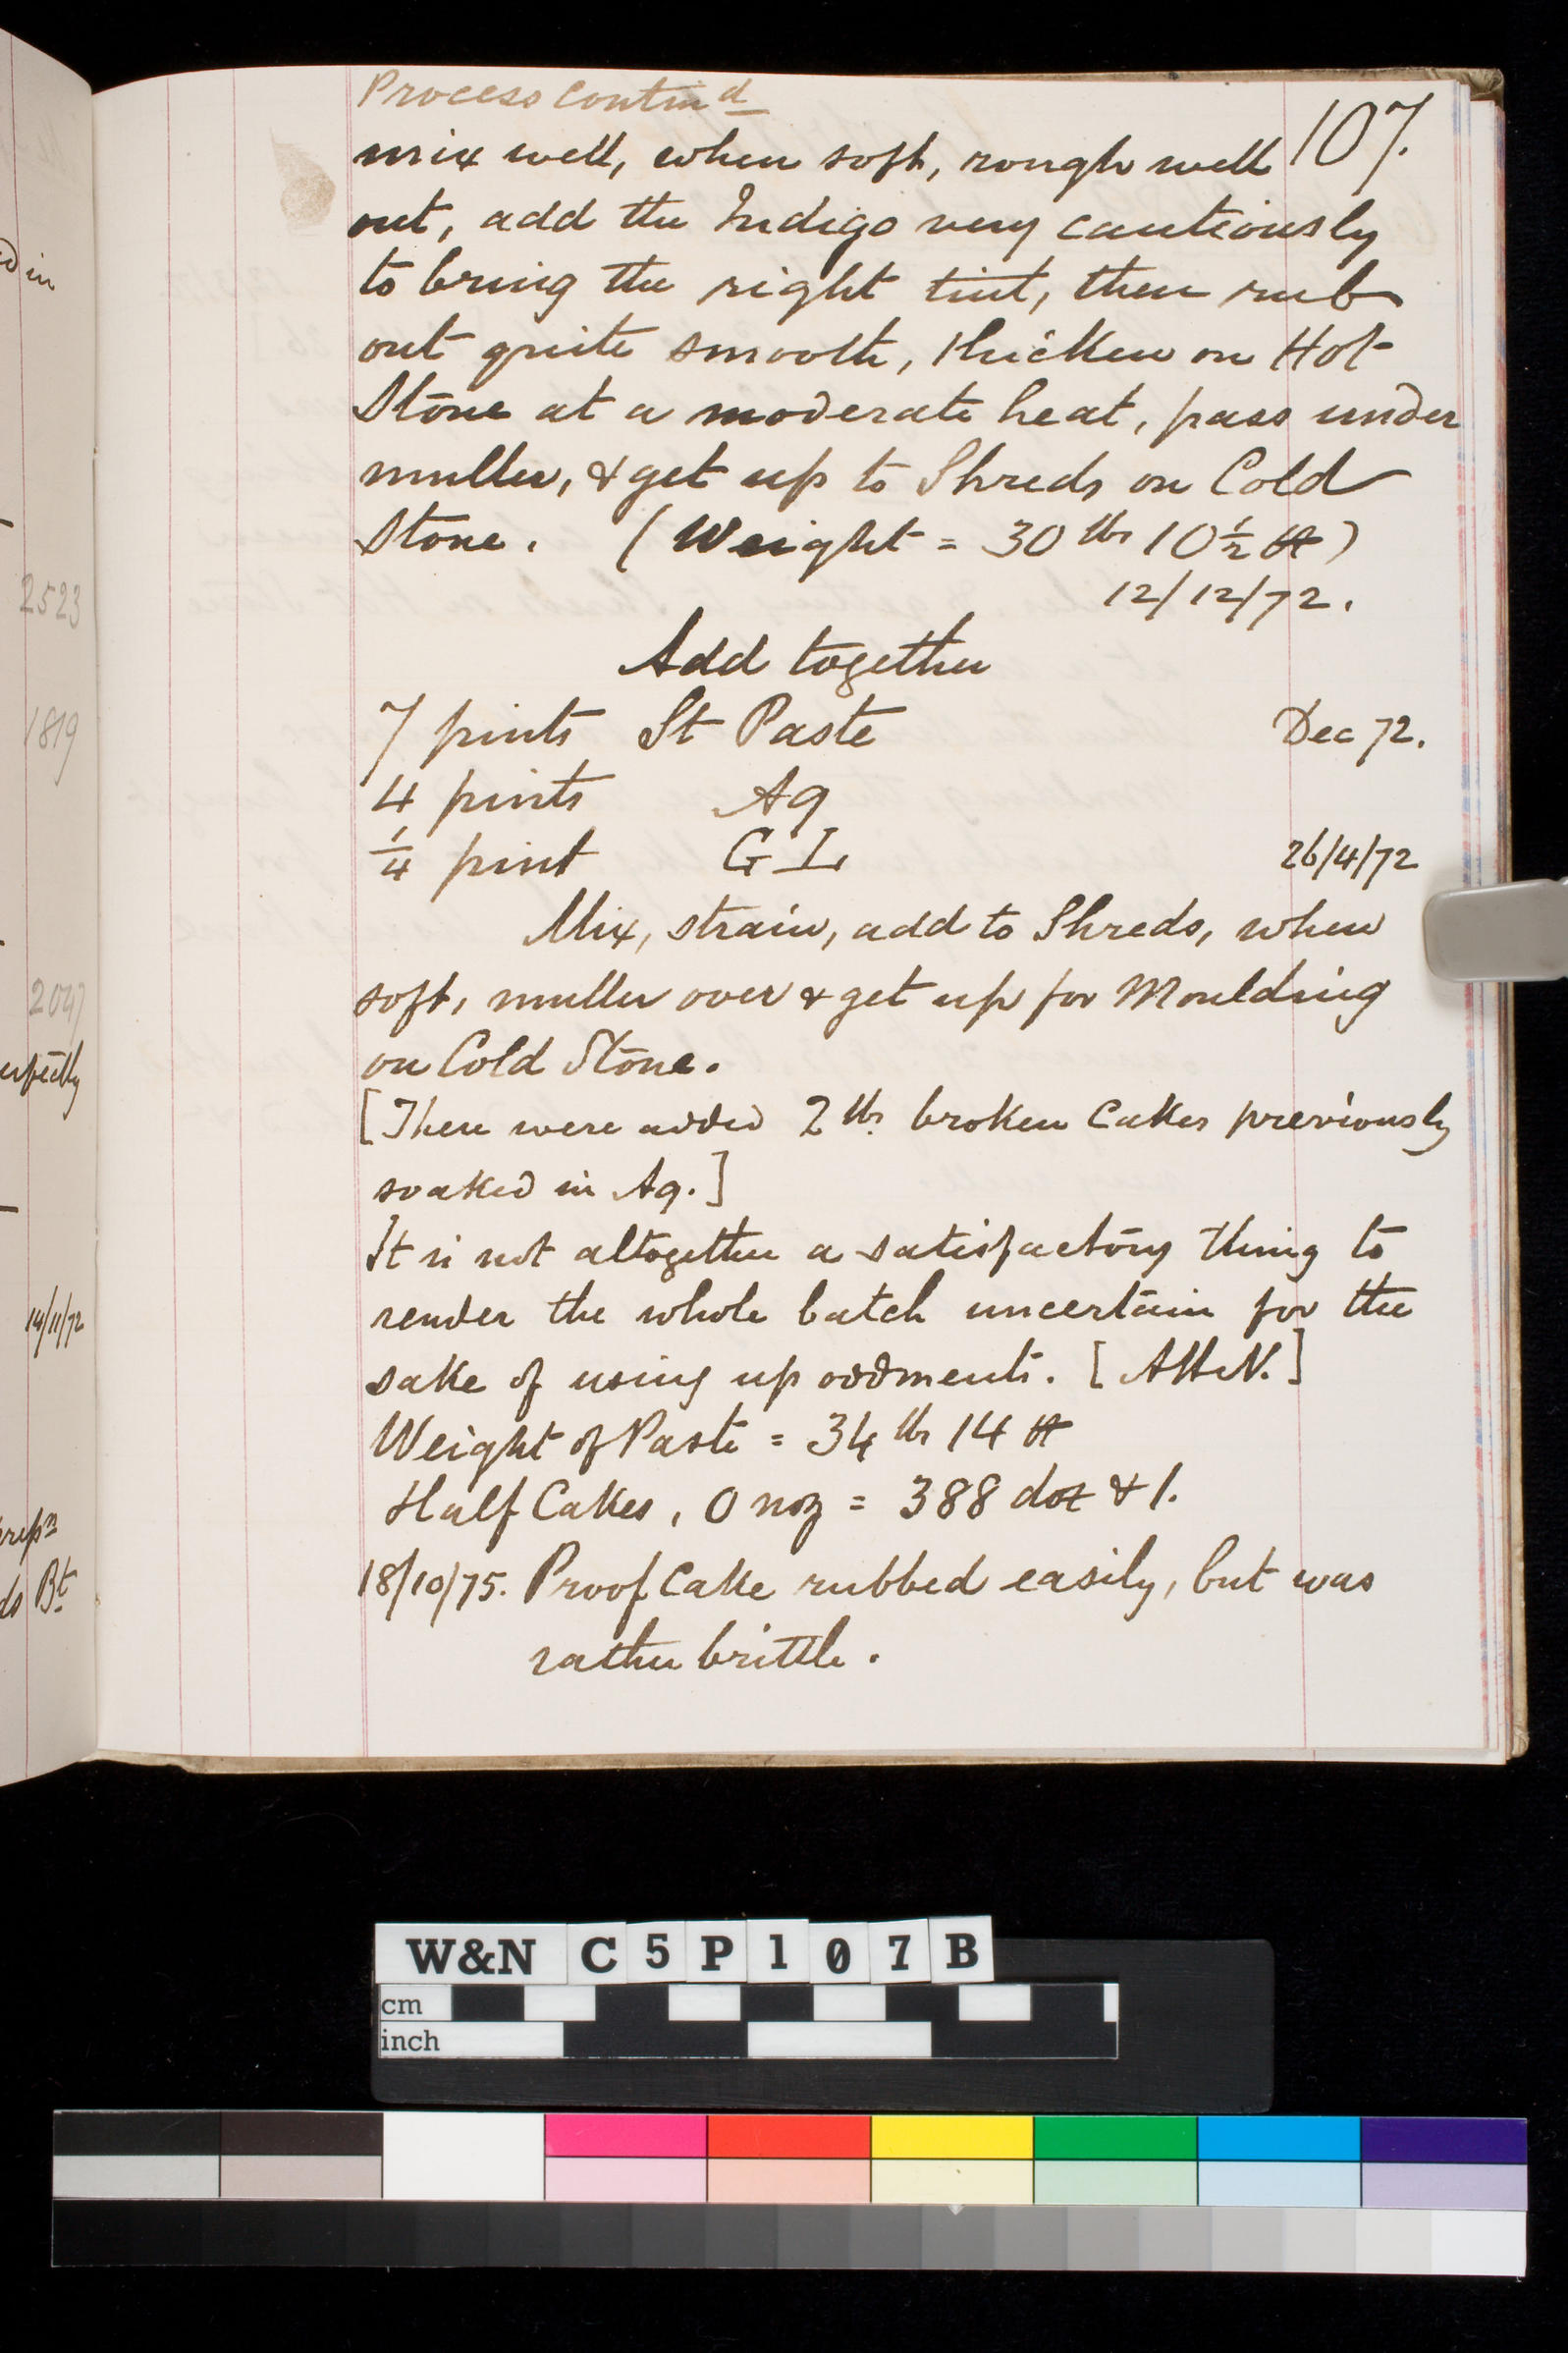 Process Contind
107.
mix well, when soft, rough well
out, add the Indigo very cautiously
to bring the right tint, then rub
out quite smooth, thicken on Hot
Stone at a moderate heat, pass under
muller, & get up to Shreds on Cold
Stone. (Weight = 30 lbs 10½ )
12/12/72.
Add together
7 pints St Paste Dec 72.
4 pints Aq
¼ pint G L 26/4/72
Mix, strain, add to Shreds, when
soft, muller over & get up for Moulding
on Cold Stone.
[There were added 2 lbs. broken Cakes previously
soaked in Aq.]
It is not altogether a satisfactory thing to
render the whole batch uncertain for the
sake of using up oddments. [AHN.]
Weight of Paste = 34 lbs 14
Half Cakes, 0 = 388 doz & 1.
18/10/75. Proof Cake rubbed easily, but was
rather brittle.
in
2523
1819
2047
14/11/72
Bt
W&N C5P107B
cm
inch